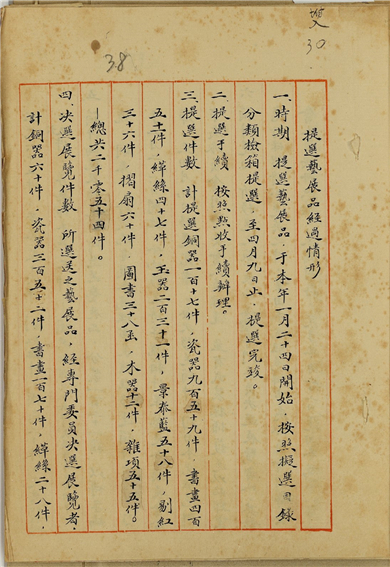 30.
38
提選藝展品經過情形
一、時期 提選藝展品，于本年一月二十四日開始，按照擬選目錄
分類檢箱提選，至四月九日止，提選完竣。
二 提選手續 按照點收手續辦理。
三、提選件數 計提選銅器一百十七件，瓷器九百五十九件 書畫四百
五十件，緙絲四十七件，玉器二百三十一件，景泰藍五十八件，剔紅
三十六件，摺扇六十件 圖書三十八函，木器十二件，雜項五十五件。
總共二千零五十四件。
四、決選展覽件數 所選送之藝展品，經專門委員決選展覽者，
計銅器六十件，瓷器三百五十二件，書畫一百七十件，緙絲二十八件，